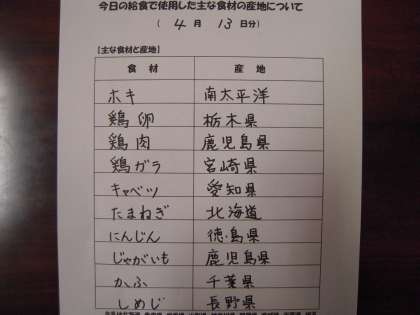 今日の給食で使用した主な食材の産地について
( 4 月 13 日分)
【主な食材と産地】
食 材 産 地
ホキ 南太平洋
鶏卵 栃木県
鶏肉 鹿児島県
鶏ガラ 宮崎県
キャベツ 愛知県
たまねぎ 北海道
にんじん 徳島県
じゃがいも 鹿児島県
かぶ 千葉県
しめじ 長野県